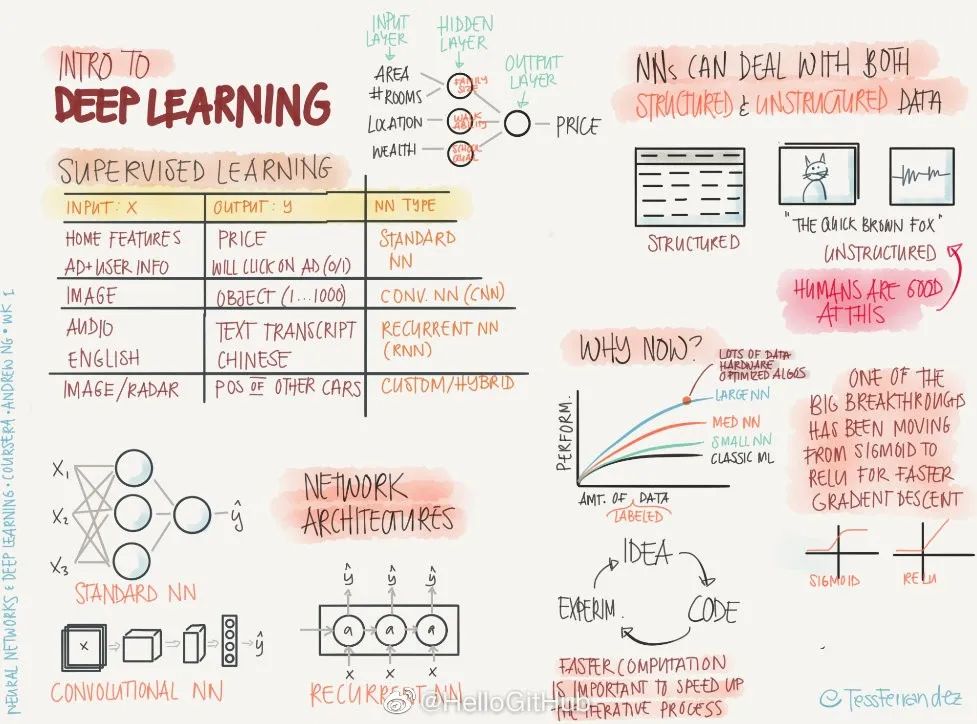 INTRO TO
DEEP LEARNING
INPUT
LAYER
HIDDEN
LAYER
OUTPUT
LAYER
AREA
#ROOMS
LOCATION
WEALTH
FAMILY
SIZE
WALK
ABILITY
SCHOOL
QUAL
PRICE
SUPERVISED LEARNING
INPUT: X OUTPUT: Y NN TYPE
HOME FEATURES PRICE STANDARD
AD+USER INFO WILL CLICK ON AD (0/1) NN
IMAGE OBJECT (1...1000) CONV. NN (CNN)
AUDIO TEXT TRANSCRIPT RECURRENT NN
ENGLISH CHINESE (RNN)
IMAGE/RADAR POS OF OTHER CARS CUSTOM/HYBRID
NNs CAN DEAL WITH BOTH
STRUCTURED & UNSTRUCTURED DATA
STRUCTURED
"THE QUICK BROWN FOX"
UNSTRUCTURED
HUMANS ARE GOOD
AT THIS
WHY NOW?
LOTS OF DATA
HARDWARE
OPTIMIZED ALGOS
LARGE NN
MED NN
SMALL NN
CLASSIC ML
PERFORM.
AMT. OF DATA
LABELED
ONE OF THE
BIG BREAKTHROUGHS
HAS BEEN MOVING
FROM SIGMOID TO
RELU FOR FASTER
GRADIENT DESCENT
SIGMOID
RELU
X1
X2
X3
ŷ
STANDARD NN
NETWORK
ARCHITECTURES
x
ŷ
CONVOLUTIONAL NN
ŷ ŷ ŷ
a a a
x x x
RECURRENT NN
IDEA
CODE
EXPERIM.
FASTER COMPUTATION
IS IMPORTANT TO SPEED UP
THE ITERATIVE PROCESS
NEURAL NETWORKS & DEEP LEARNING • COURSERA • ANDREW NG • WK 1
@HelloGitHub
@TessFerrandez